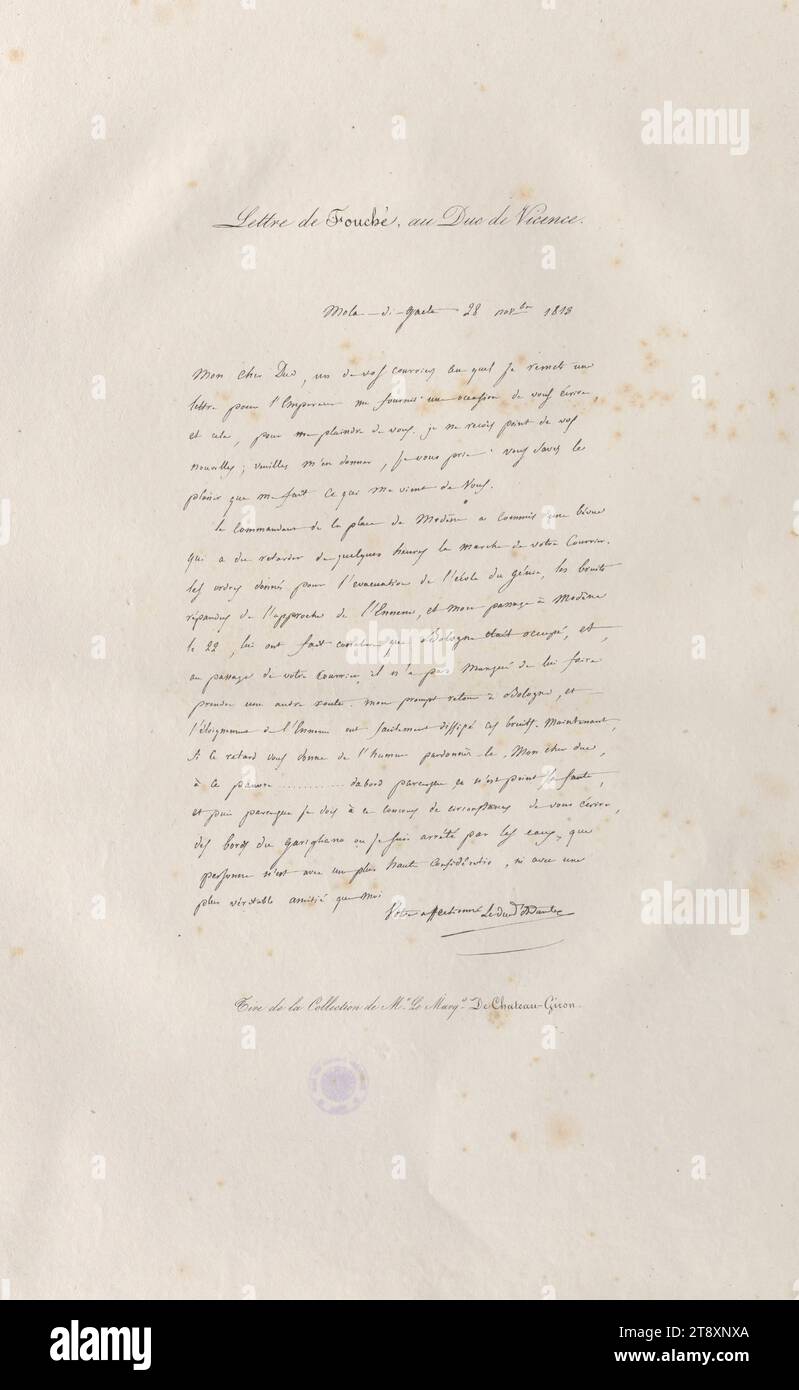 alamy
Lettre de Fouché, au Duc de Vicence.
Mola-di-gaete 28 novbre 1813
Mon cher Duc, un de vos courriers au quel je remets une
lettre pour l'Empereur me fournit une occasion de vous écrire,
et cela, pour me plaindre de vous. je ne reçois point de vos
nouvelles; veuilles m'en donner, je vous prie. vous savez le
plaisir que me fait ce qui me vient de Vous.
le commandant de la place de Modène a commis une bévue
qui a du retarder de quelques heures la marche de votre Courrier.
les ordres donnés pour l'evacuation de l'école du génie, les bruits
répandus de l'approche de l'Ennemi, et mon passage à Modène
le 22, lui ont fait croire que Bologne était occupé, et,
au passage de votre Courrier, il n'a pas manqué de lui faire
prendre une autre route. mon prompt retour à Bologne, et
l'éloignement de l'Ennemi ont facilement dissipé ces bruits. Maintenant,
si ce retard vous donne de l'humeur pardonnés le, Mon cher duc,
à ce pauvre ............ dabord parceque ce n'est point sa faute,
et puis parceque je dois à ce concours de circonstances de vous écrire,
des bords du Garigliano ou je suis arrêté par les eaux, que
personne n'est avec un plus haute considération, ni avec une
plus véritable amitié que moi
Votre affectionné Le duc d'Otrante
Tiré de la Collection de Mr. Le Marqs. De Chateau-Giron.
alamy
Image ID: 2T8XNXA
www.alamy.com